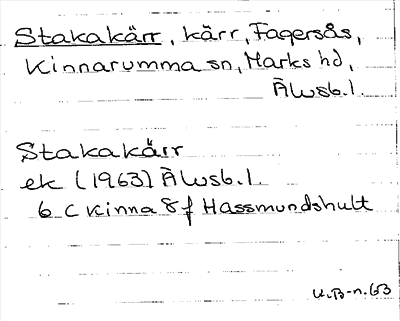 Stakakärr, kärr, Fagersås,
Kinnarumma sn, Marks hd,
Älvsb. l.
Stakakärr
ek (1963) Älvsb. l.
6 C Kinna 8 f Hassmundshult